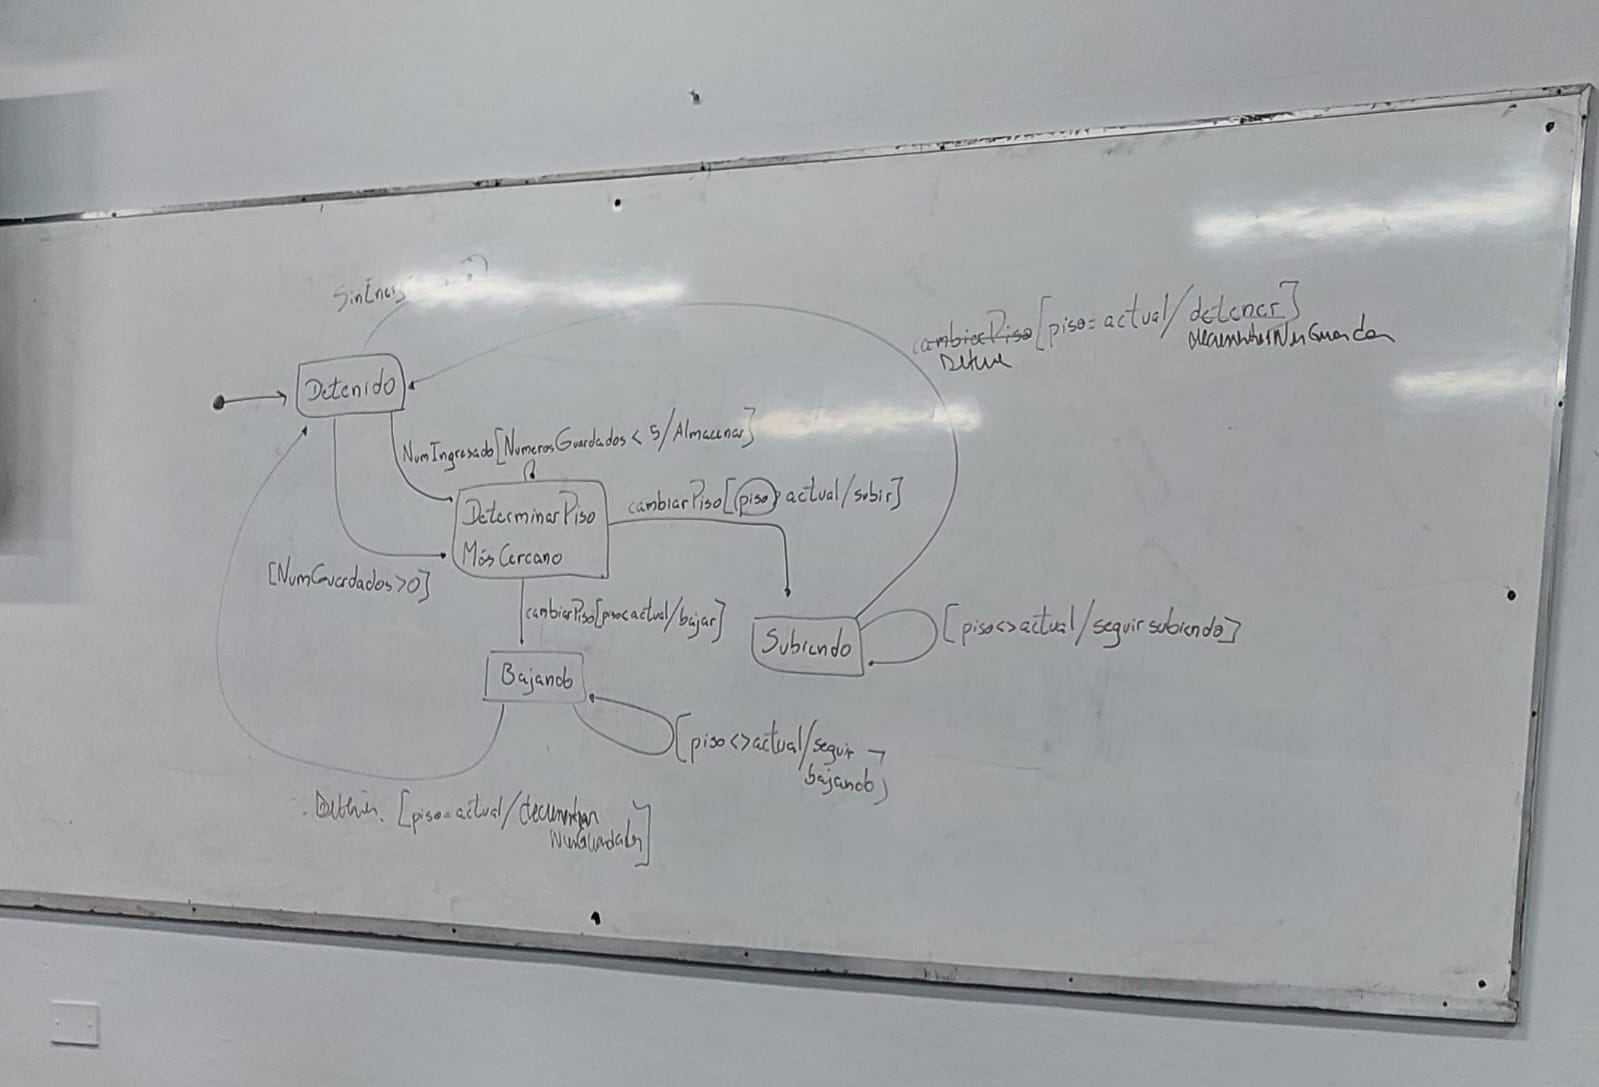 cambiarPiso[piso=actual/detener]
Detenido
NumIngresado[NumerosGuardados<5/Almacenar]
DeterminarPiso
Más Cercano
cambiarPiso[piso>actual/subir]
[NumGuardados>0]
cambiarPiso[piso<actual/bajar]
Subiendo
[piso<>actual/seguir subiendo]
Bajando
[piso<>actual/seguir
bajando]
[piso=actual/decrementar
NumGuardados]